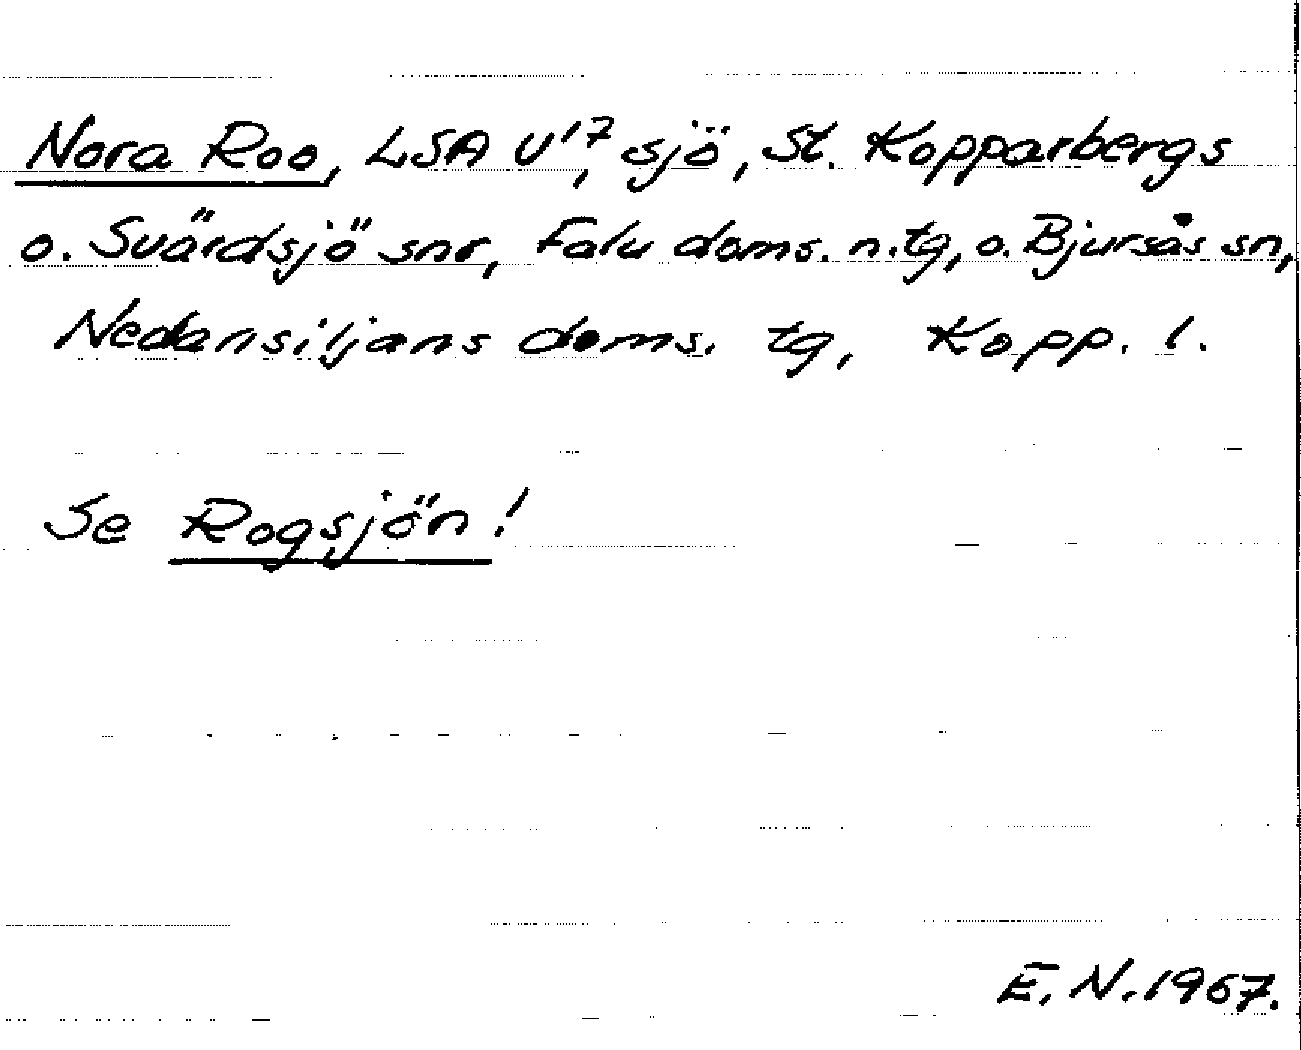 Nora Roo, LSA U'7, sjö, St. Kopparbergs
o. Svärdsjö snr, Falu doms. n.tg, o. Bjursås sn,
Nedansiljans doms. tg, Kopp. l.
Se Rogsjön!
E.N.1967.